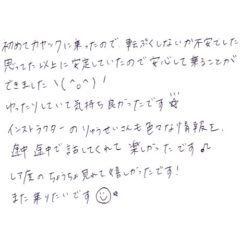 初めてカヤックに乗ったので、転ぷくしないか不安でした
思ってた以上に安定していたので安心して乗ることが
できました\(^o^)/
ゆったりしていて気持ち良かったです☆
インストラクターのりゅうせいさんも色々な情報を、
途中途中で話してくれて楽しかったです♪
の ちょうちょ見れて嬉しかったです!
また乗りたいです☺